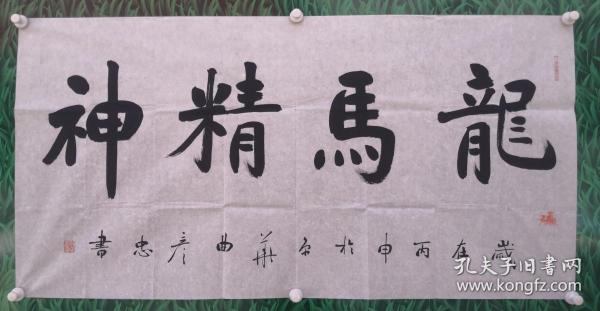 龍馬精神
歲在丙申於京華曲彦忠書
孔夫子旧书网
www.kongfz.com